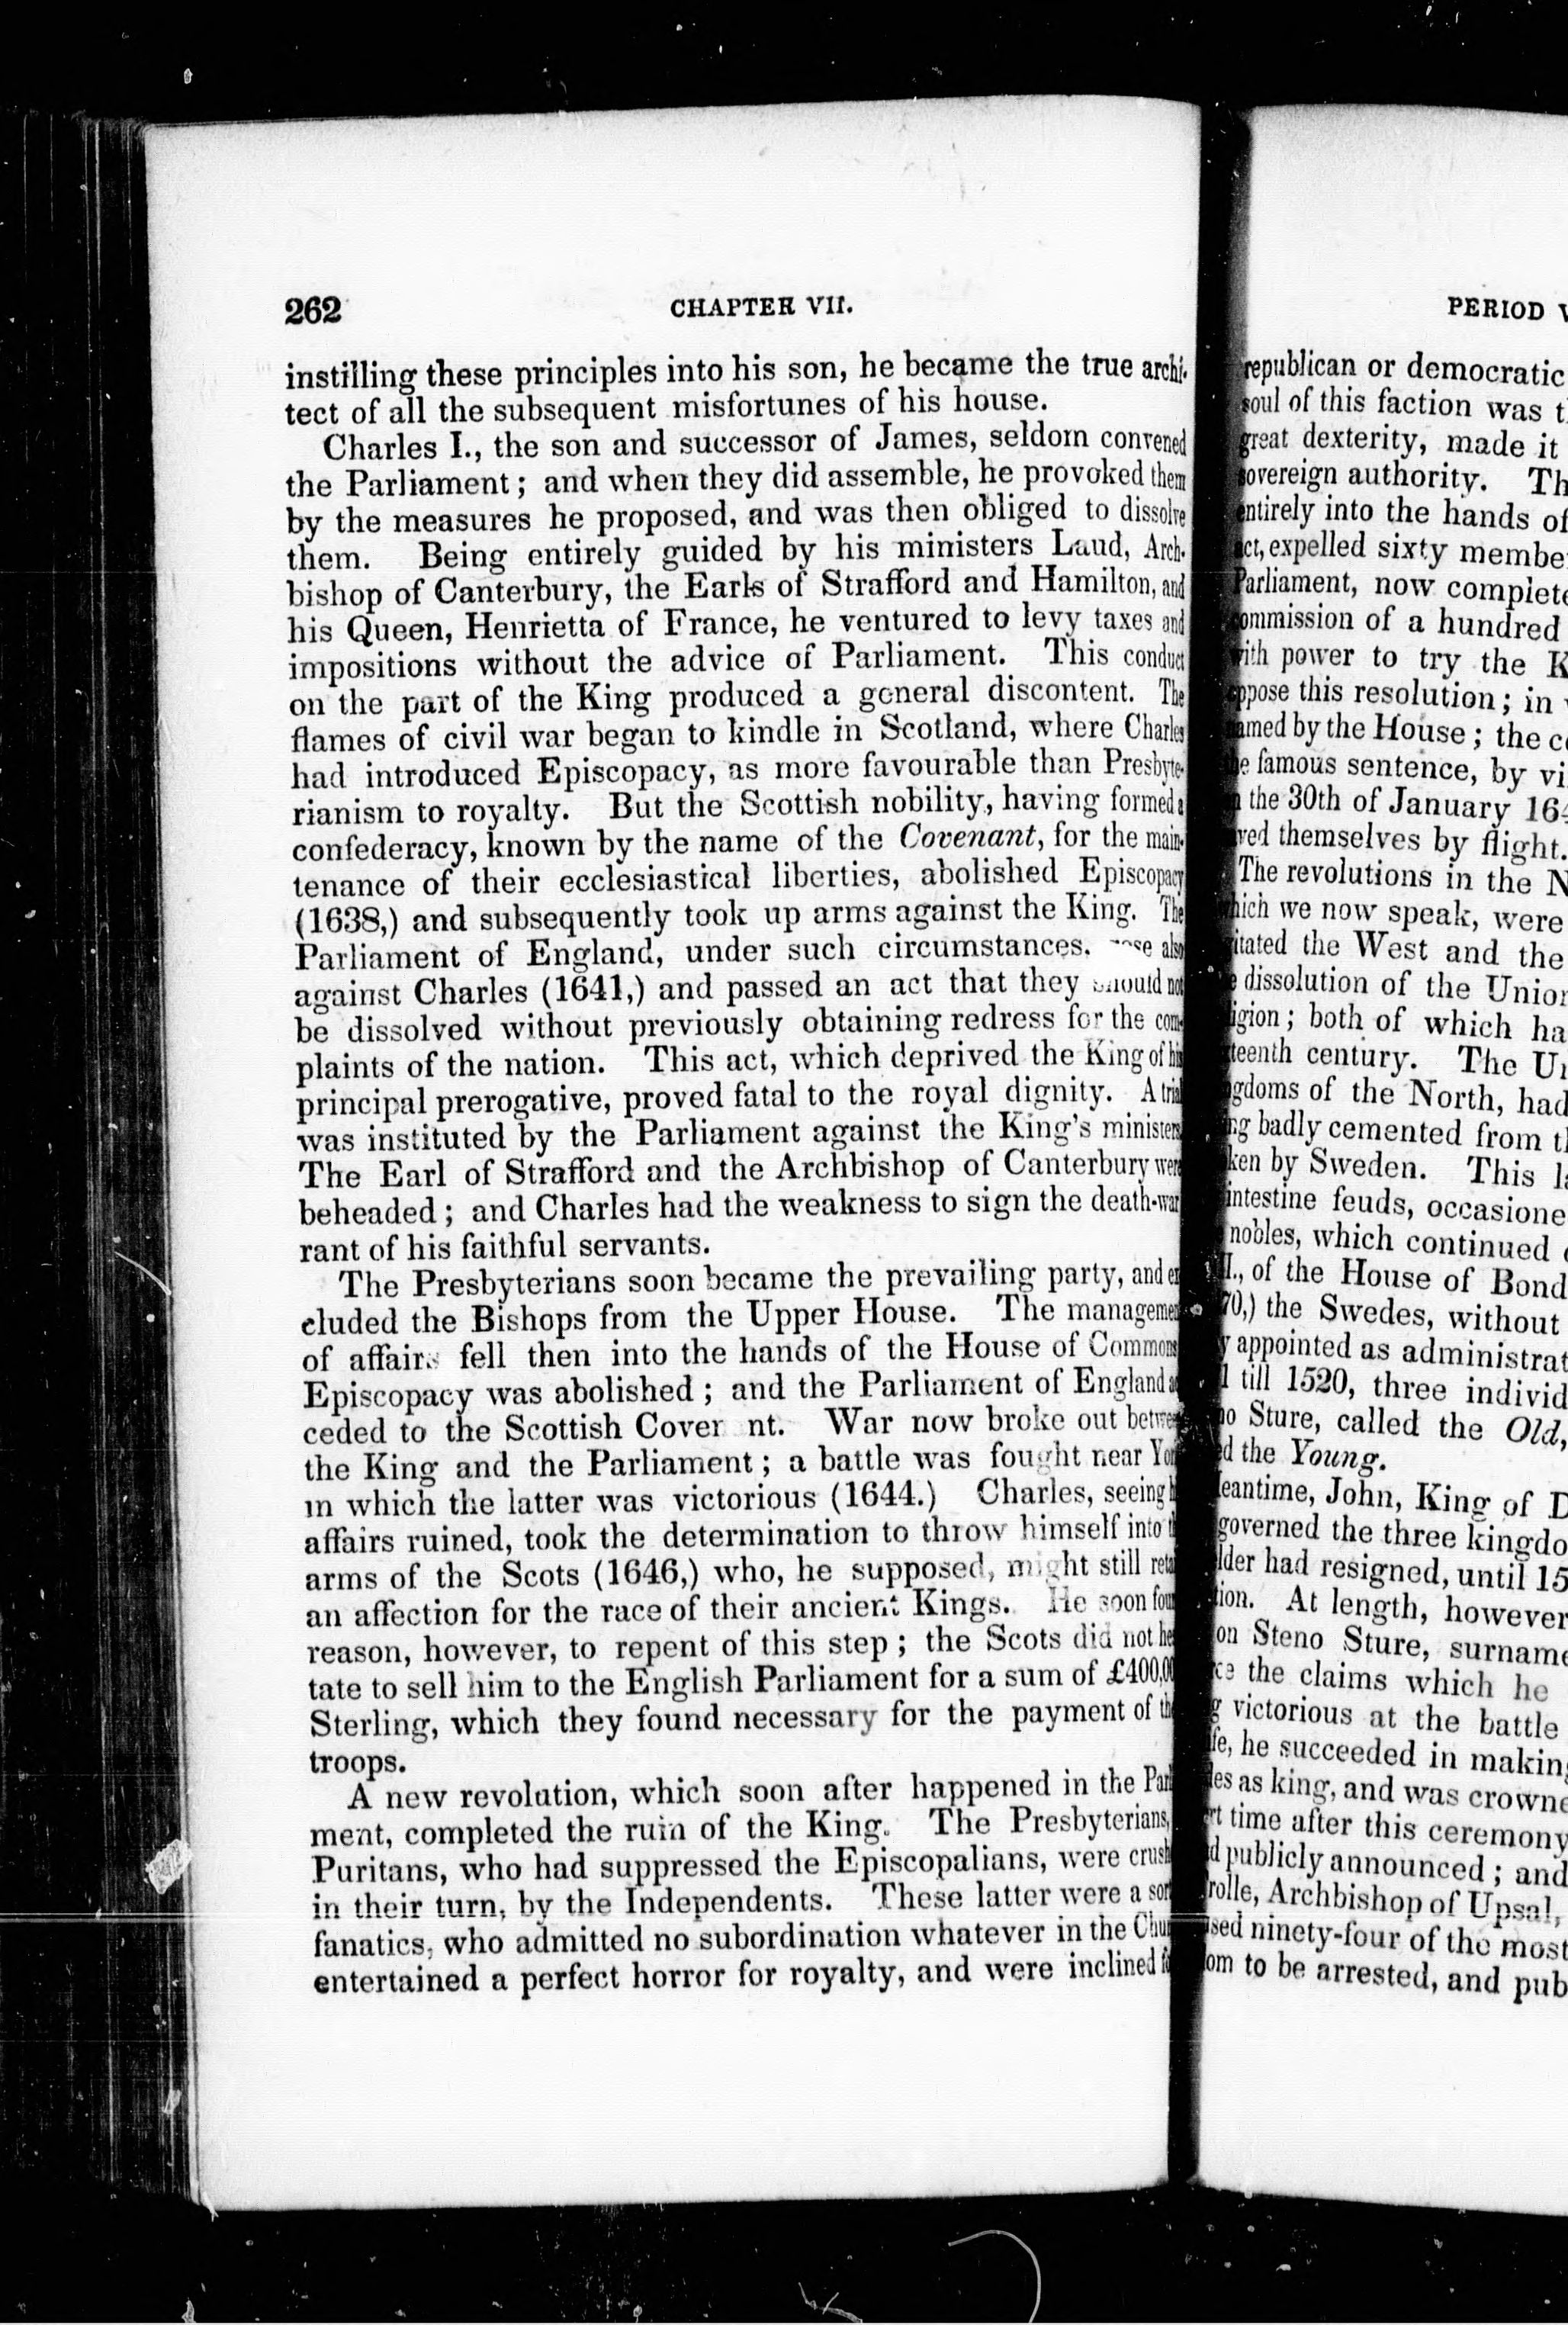 262 CHAPTER VII.
instilling these principles into his son, he became the true archi-
tect of all the subsequent misfortunes of his house.
Charles I., the son and successor of James, seldom convened
the Parliament; and when they did assemble, he provoked them
by the measures he proposed, and was then obliged to dissolve
them. Being entirely guided by his ministers Laud, Arch-
bishop of Canterbury, the Earls of Strafford and Hamilton, and
his Queen, Henrietta of France, he ventured to levy taxes and
impositions without the advice of Parliament. This conduct
on the part of the King produced a general discontent. The
flames of civil war began to kindle in Scotland, where Charles
had introduced Episcopacy, as more favourable than Presbyte-
rianism to royalty. But the Scottish nobility, having formed a
confederacy, known by the name of the Covenant, for the main-
tenance of their ecclesiastical liberties, abolished Episcopacy
(1638,) and subsequently took up arms against the King. The
Parliament of England, under such circumstances, also
against Charles (1641,) and passed an act that they should not
be dissolved without previously obtaining redress for the com-
plaints of the nation. This act, which deprived the King of his
principal prerogative, proved fatal to the royal dignity. A trial
was instituted by the Parliament against the King's ministers
The Earl of Strafford and the Archbishop of Canterbury were
beheaded; and Charles had the weakness to sign the death-war
rant of his faithful servants.
The Presbyterians soon became the prevailing party, and
cluded the Bishops from the Upper House. The managemen
of affairs fell then into the hands of the House of Commons
Episcopacy was abolished; and the Parliament of England
ceded to the Scottish Cover nt. War now broke out betwee
the King and the Parliament; a battle was fought near Yor
in which the latter was victorious (1644.) Charles, seeing
affairs ruined, took the determination to throw himself into
arms of the Scots (1646,) who, he supposed, might still reta
an affection for the race of their ancient Kings. He soon fou
reason, however, to repent of this step; the Scots did not he
tate to sell him to the English Parliament for a sum of £400,00
Sterling, which they found necessary for the payment of the
troops.
A new revolution, which soon after happened in the Parl
ment, completed the ruin of the King. The Presbyterians,
Puritans, who had suppressed the Episcopalians, were crush
in their turn, by the Independents. These latter were a sort
fanatics, who admitted no subordination whatever in the Chur
entertained a perfect horror for royalty, and were inclined
PERIOD
republican or democratic
soul of this faction was
great dexterity, made it
sovereign authority. Th
entirely into the hands of
act, expelled sixty membe
Parliament, now complete
commission of a hundred
with power to try the K
oppose this resolution; in
named by the House; the c
famous sentence, by vi
the 30th of January 164
ved themselves by flight.
The revolutions in the N
hich we now speak, were
itated the West and the
dissolution of the Union
ligion; both of which ha
teenth century. The Un
gdoms of the North, had
ng badly cemented from t
ken by Sweden. This l
intestine feuds, occasione
nobles, which continued
I., of the House of Bond
70,) the Swedes, without
y appointed as administrat
till 1520, three individ
no Sture, called the Old,
ed the Young.
eantime, John, King of D
governed the three kingdo
lder had resigned, until 15
tion. At length, however
on Steno Sture, surname
the claims which he
g victorious at the battle
fe, he succeeded in making
les as king, and was crowne
rt time after this ceremony
d publicly announced; and
rolle, Archbishop of Upsal,
sed ninety-four of the most
om to be arrested, and pub